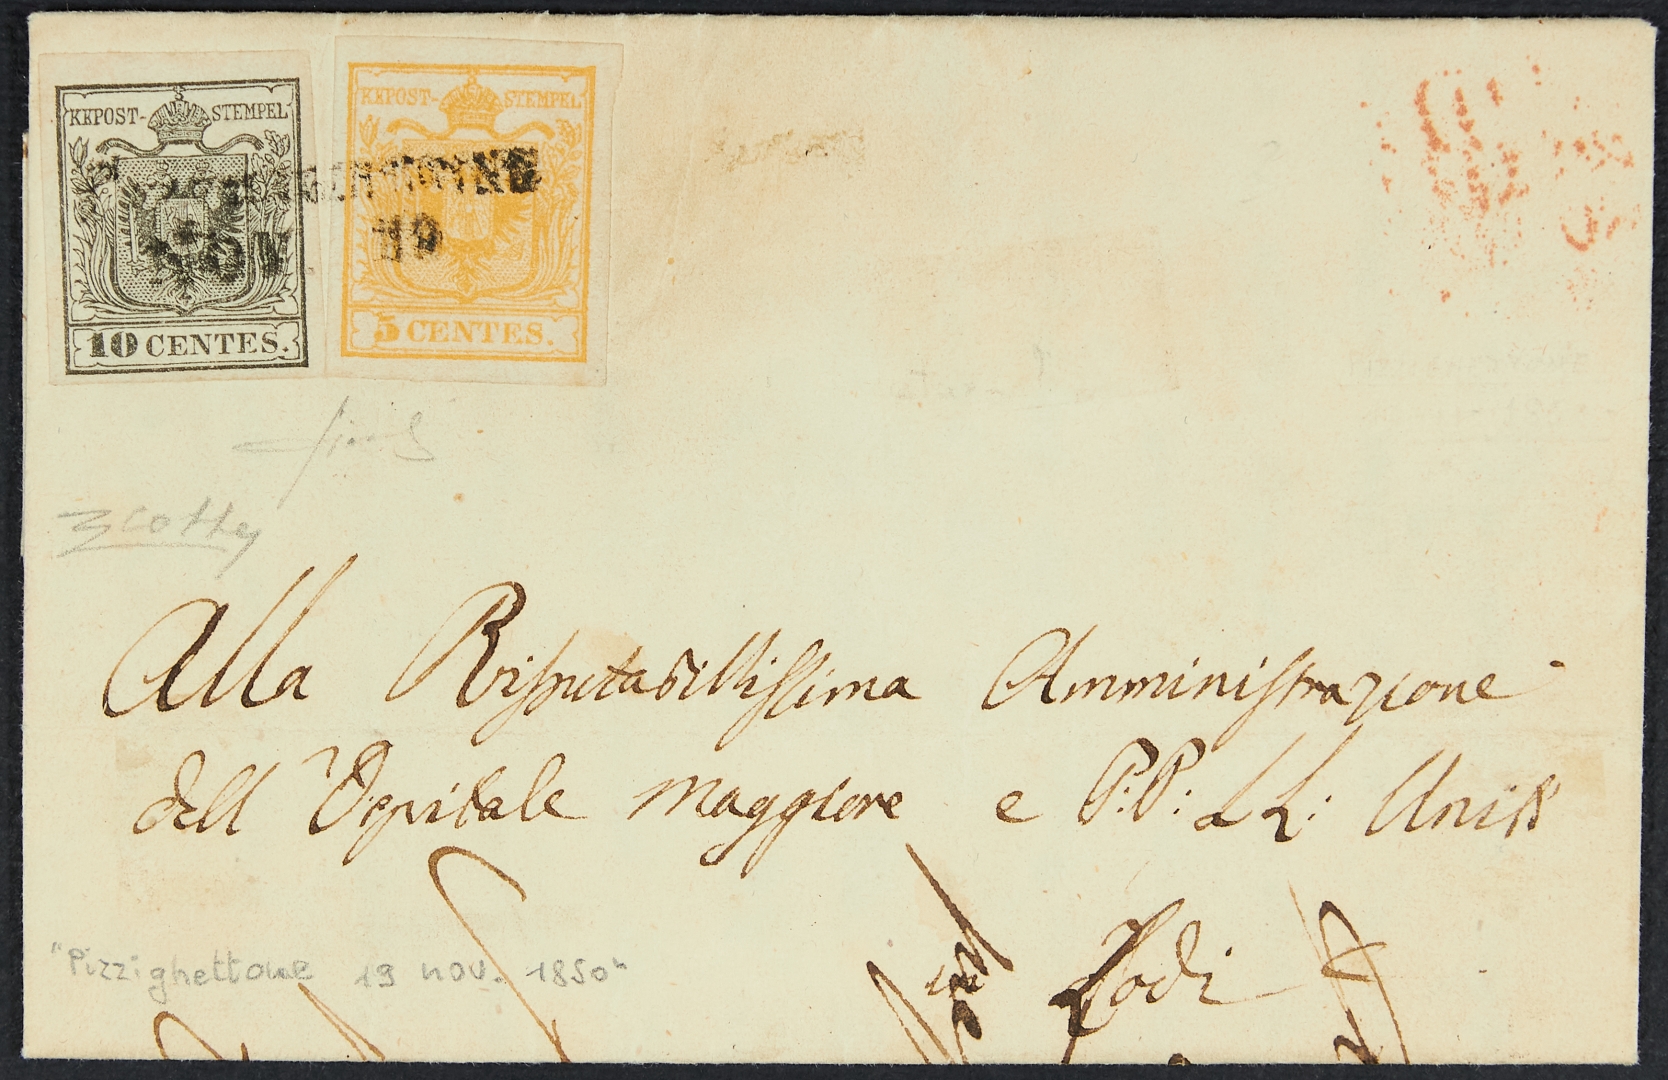 KKPOST-STEMPEL
10 CENTES.
KKPOST-STEMPEL
5 CENTES.
NOV 19
Scotty
Alla Rispetabillissima Amministrazione
dell'Ospitale Maggiore e P:P: LL: Uniti
in Lodi
"Pizzighettone 19 nov. 1850"